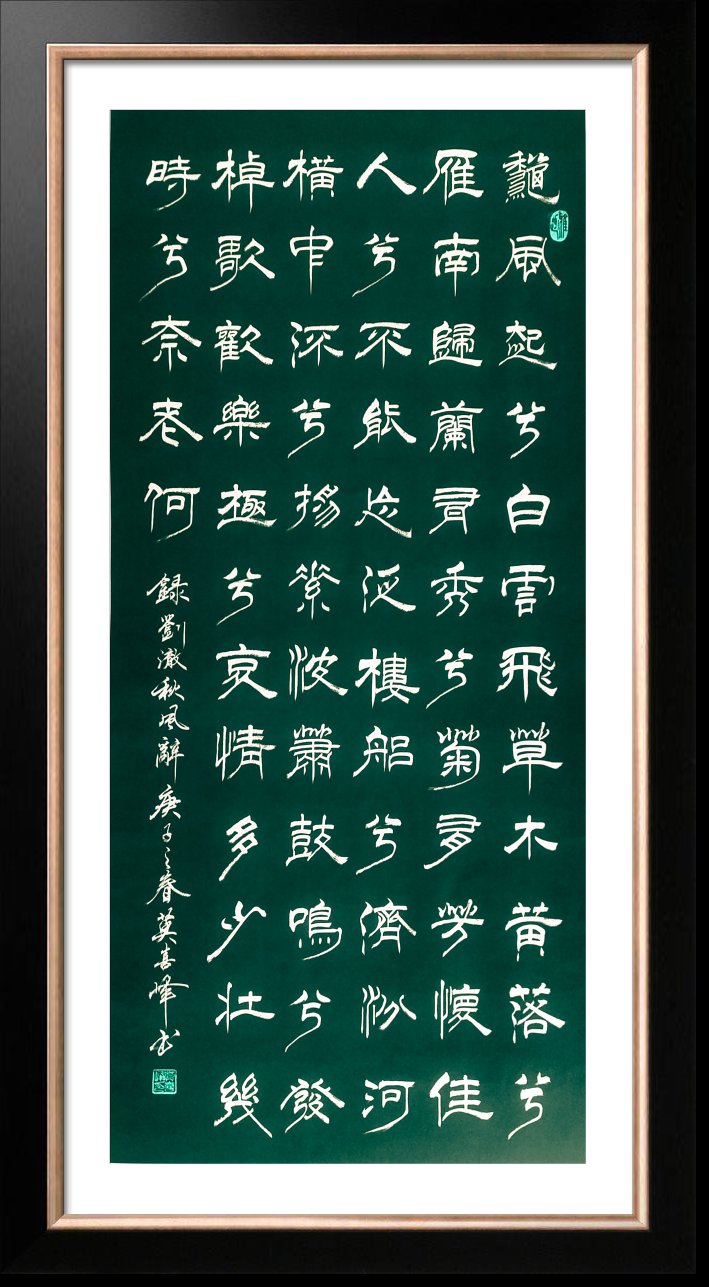 龝風起兮白雲飛草木黄落兮
雁南歸蘭有秀兮菊有芳懷佳
人兮不能忘泛樓船兮濟汾河
橫中流兮揚素波蕭鼓鳴兮發
棹歌歡樂極兮哀情多少壯幾
時兮奈老何
録劉澈秋風辭 庚子之春莫喜峰书